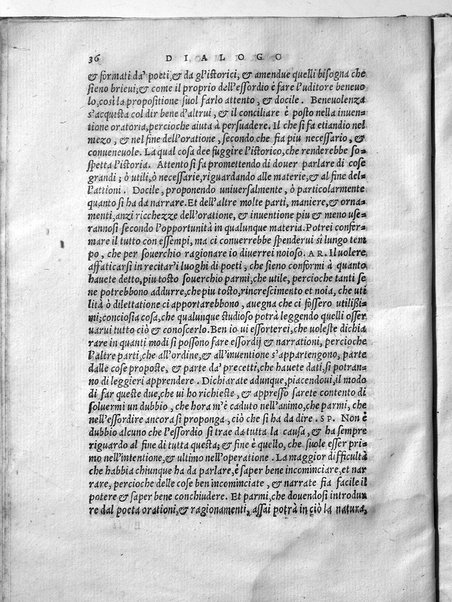 36 DIALOGO
& formati da' poeti, & da gl'istorici, & amendue quelli bisogna che
sieno brieui, & come il proprio dell'essordio è fare l'uditore beneuo
lo, così la propositione suol farlo attento, & docile. Beneuolenza
s'acquista col dir bene d'altrui, & il conciliare è posto nella inuen
tione oratoria, percioche aiuta à persuadere. Il che si fa etiandio nel
mezo, & nel fine dell'oratione, secondo che fia più necessario, &
conueneuole. La qual cosa dee fuggire l'istorico, che renderebbe so=
spetta l'istoria. Attento si fa promettendo di douer parlare di cose
grandi; ò utili, ò necessarie, riguardando alle materie, & al fine del
l'attioni. Docile, proponendo uniuersalmente, ò particolarmente
quanto si ha da narrare. Et dell'altre molte parti, maniere, & orna=
menti, anzi ricchezze dell'oratione, & inuentione piu & meno use=
rannosi secondo l'opportunità in qualunque materia. Potrei confir
mare il tutto con essempi, ma ci conuerrebbe spenderui si lungo tem
po, che per souerchio ragionare io diuerrei noioso. AR. Il uolere
affaticarsi in recitar'i luoghi di poeti, che sieno conformi à quanto
hauete detto, piu tosto souerchio parmi, che utile, percioche tanti se
ne potrebbono addurre, che piu tosto, rincrescimento et noia, che uti
lità ò dilettatione ci apportarebbono, auegna che ci fossero utilißi=
mi; conciosia cosa, che qualunque studioso potrà leggendo quelli osser
uarui tutto ciò & conoscerlo. Ben io ui essorterei, che uoleste dichia
rare in quanti modi si possono fare essordij & narrationi, percioche
l'altre parti, che all'ordine, & all'inuentione s'appartengono, parte
dalle cose proposte, & parte da' precetti, che hauete dati, si potran=
no di leggieri apprendere. Dichiarate adunque, piacendoui, il modo
di far queste due, che ui ho richieste, & appresso sarete contento di
soluermi un dubbio, che hora m'è caduto nell'animo, che parmi, che
nell'essordire ancora si proponga, ciò che si ha da dire. SP. Non è
dubbio alcuno che l'essordio si trae da tutta la causa, & ha sempre
riguardo al fine di tutta questa; & fine è quello, che suole esser pri=
mo nell'intentione, & ultimo nell'operatione. La maggior difficultà
che habbia chiunque ha da parlare, è saper bene incominciare, et nar
rare, percioche delle cose ben incominciate, & narrate fia facile il
potere & saper bene conchiudere. Et parmi, che douendosi introdur
re dal poeta orationi, & ragionamenti, assai potrà in ciò la natura,